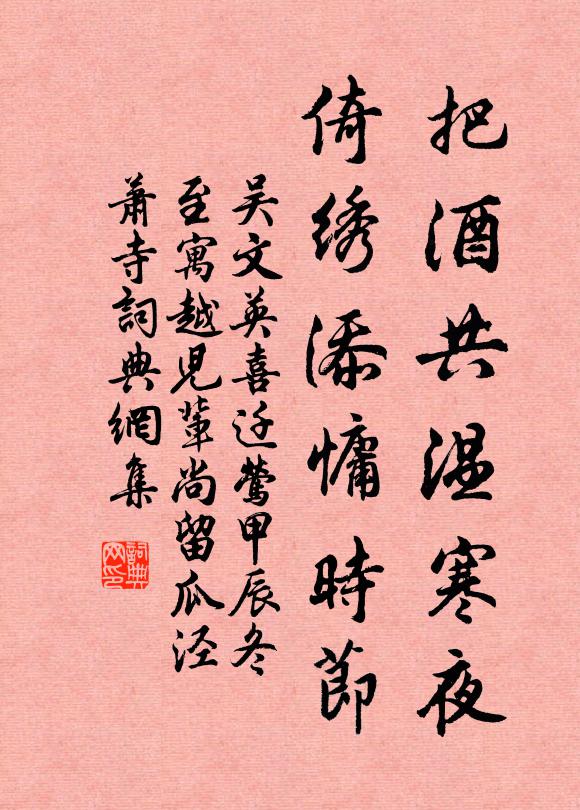 把酒共温寒夜
倚绣添慵時節
吴文英喜迁鶯甲辰冬
至寓越兒輩尚留瓜泾
蕭寺詞典網集
詞典網印